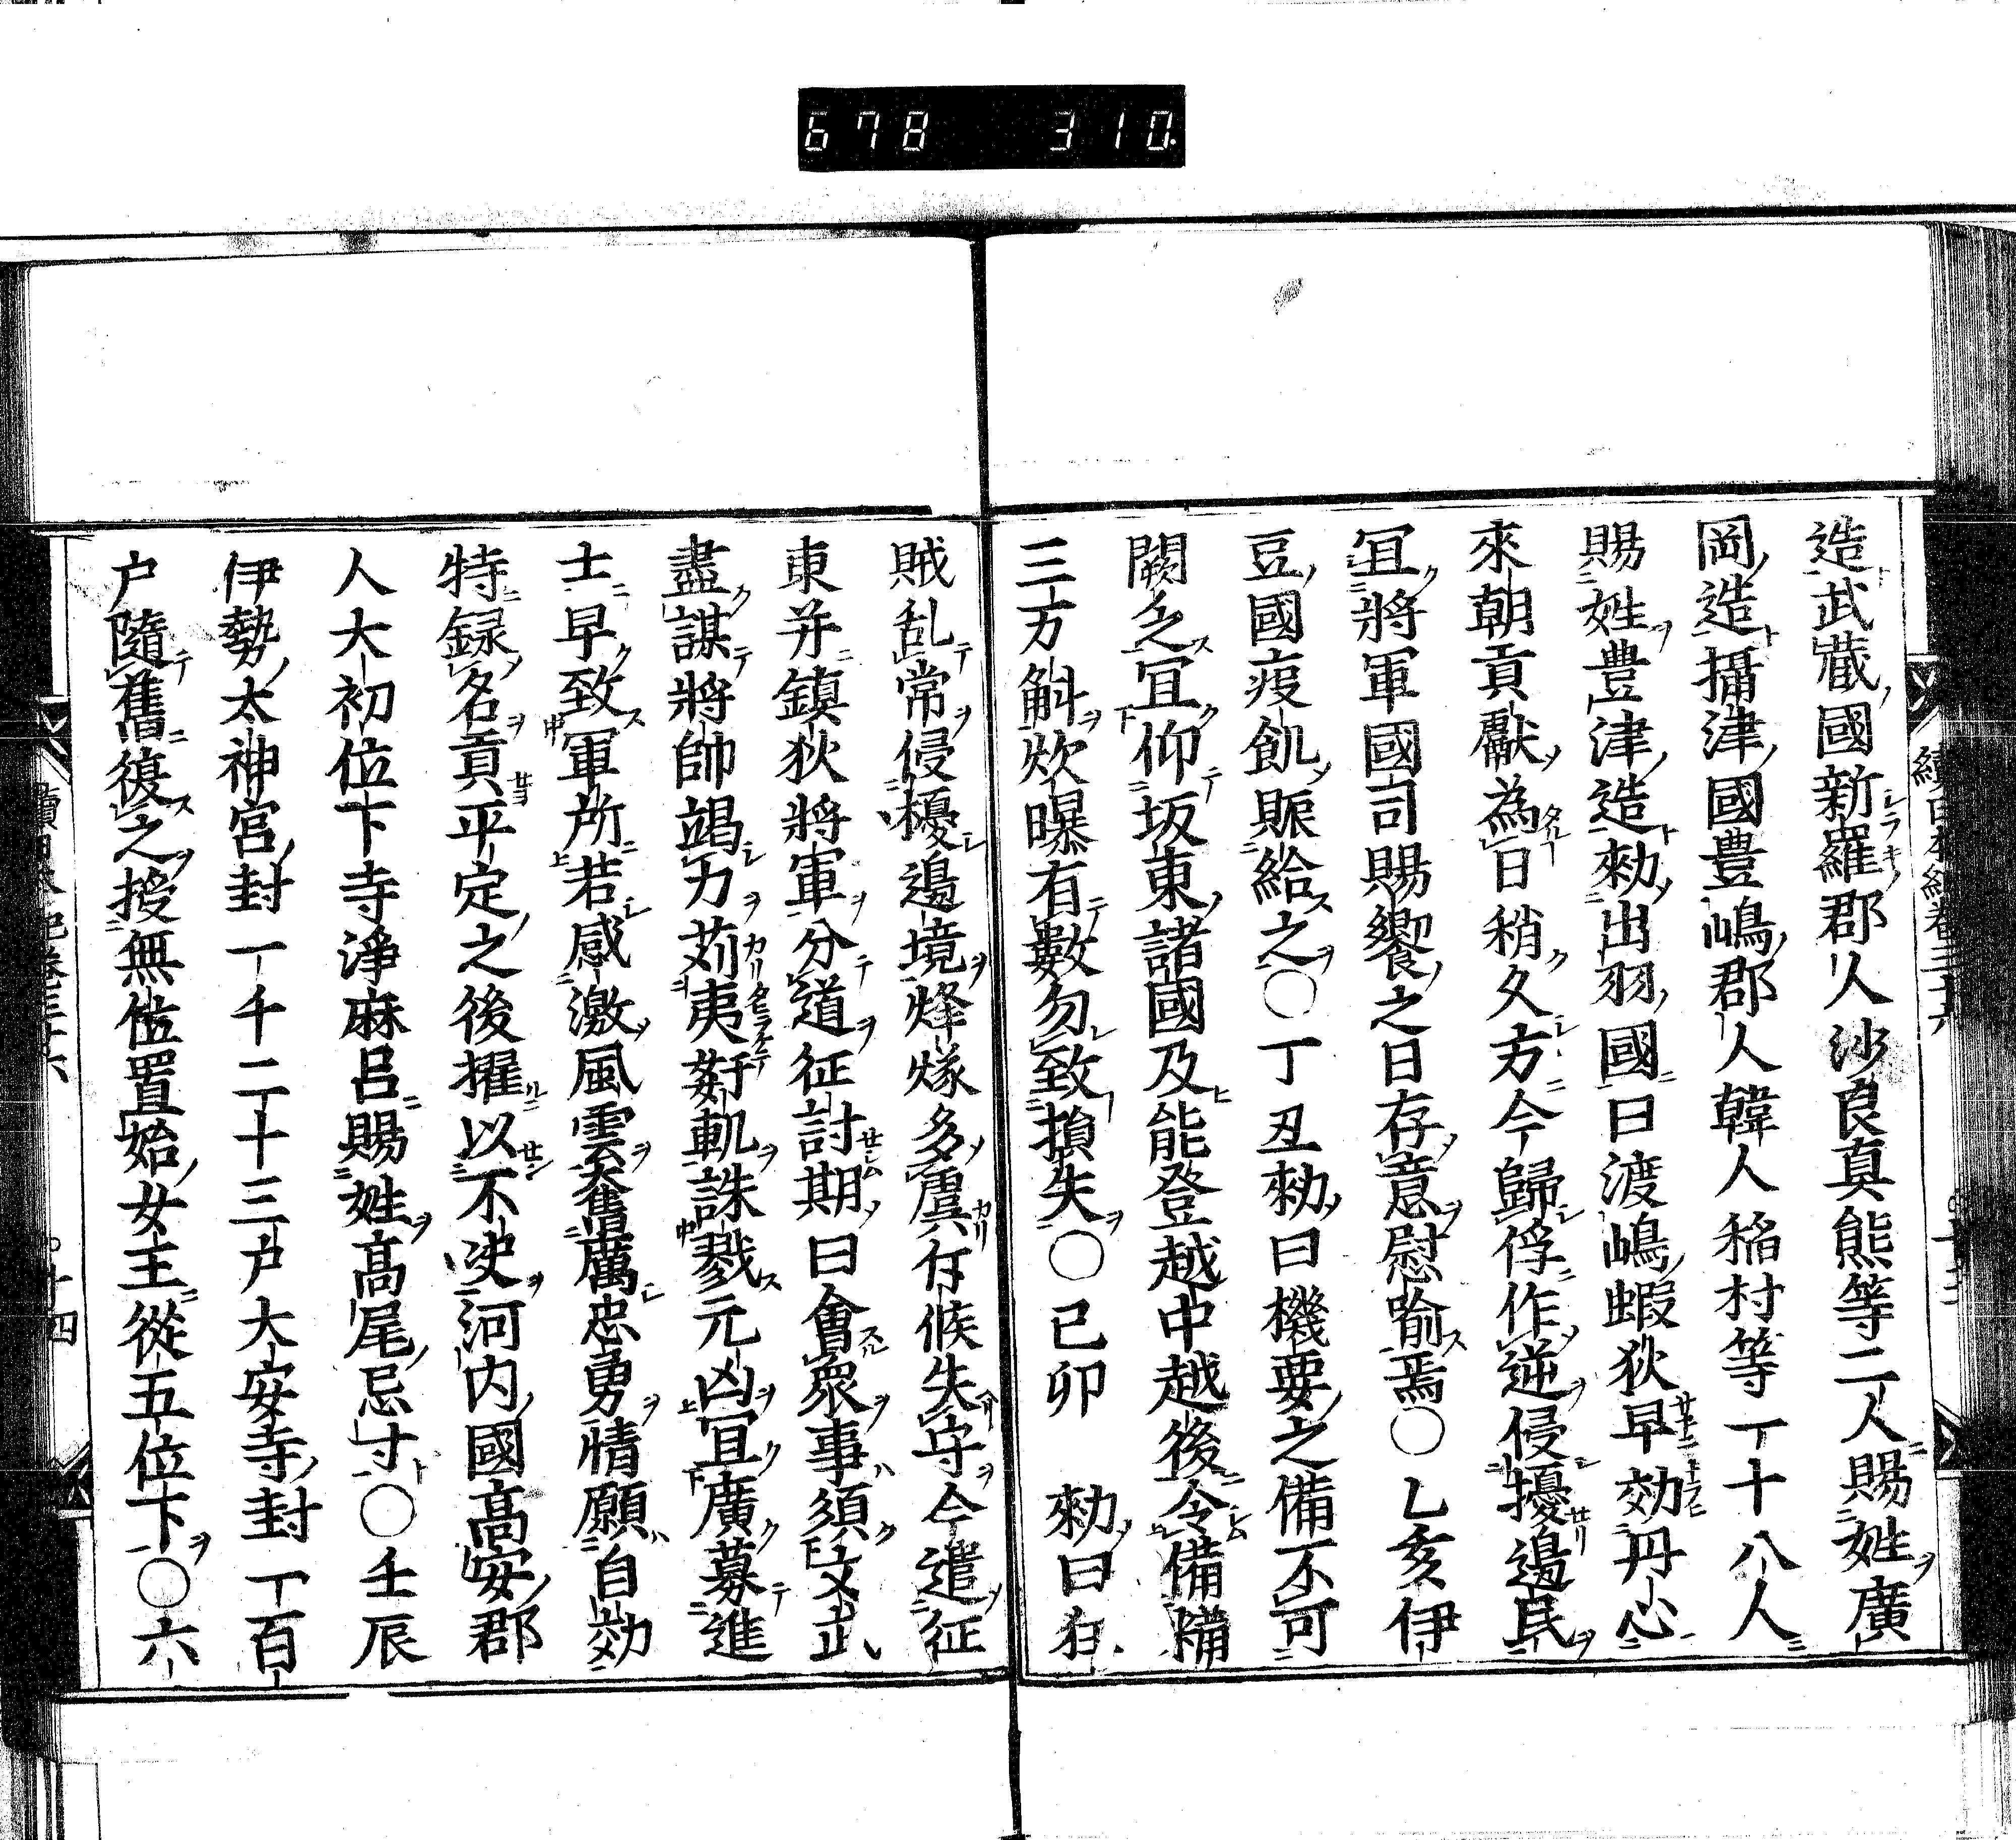 678 310
造武蔵國新羅郡人沙良真熊等二人賜姓廣
岡造攝津國豊嶋郡人韓人稲村等一十八人
賜姓豊津造勑出羽國曰渡嶋蝦狄早効丹心
來朝貢獻為日稍久方今歸俘作逆侵擾邊民
冝將軍國司賜饗之日存意慰喩焉〇乙亥伊
豆國疫飢賑給之〇丁丑勑曰機要之備不可
闕乏冝仰坂東諸國及能登越中越後令備糒
三万斛炊曝有數勿致損失〇己卯 勑曰狂
賊乱常侵擾邊境烽燧多虞斥候失守今遣征
東并鎮狄將軍分道征討期日會衆事須文武
盡謀將帥竭力苅夷姧軌誅戮元凶冝廣募進
士早致軍所若感激風雲奮厲忠勇情願自効
特録名貢平定之後擢以不次河内國高安郡
人大初位下寺淨麻呂賜姓高尾忌寸〇壬辰
伊勢太神宮封一千二十三户大安寺封一百
户隨舊復之授無位置始女王從五位下〇六